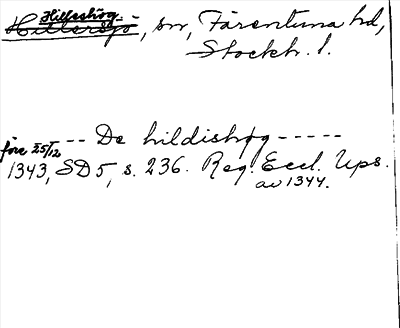 Hilleshög
Hillersjö, sn, Färentuna hd,
Stockh. l.
-- De hildishøg -----
före 25/12
1343, SD 5, s. 236. Reg. Eccl. Ups.
av 1344.